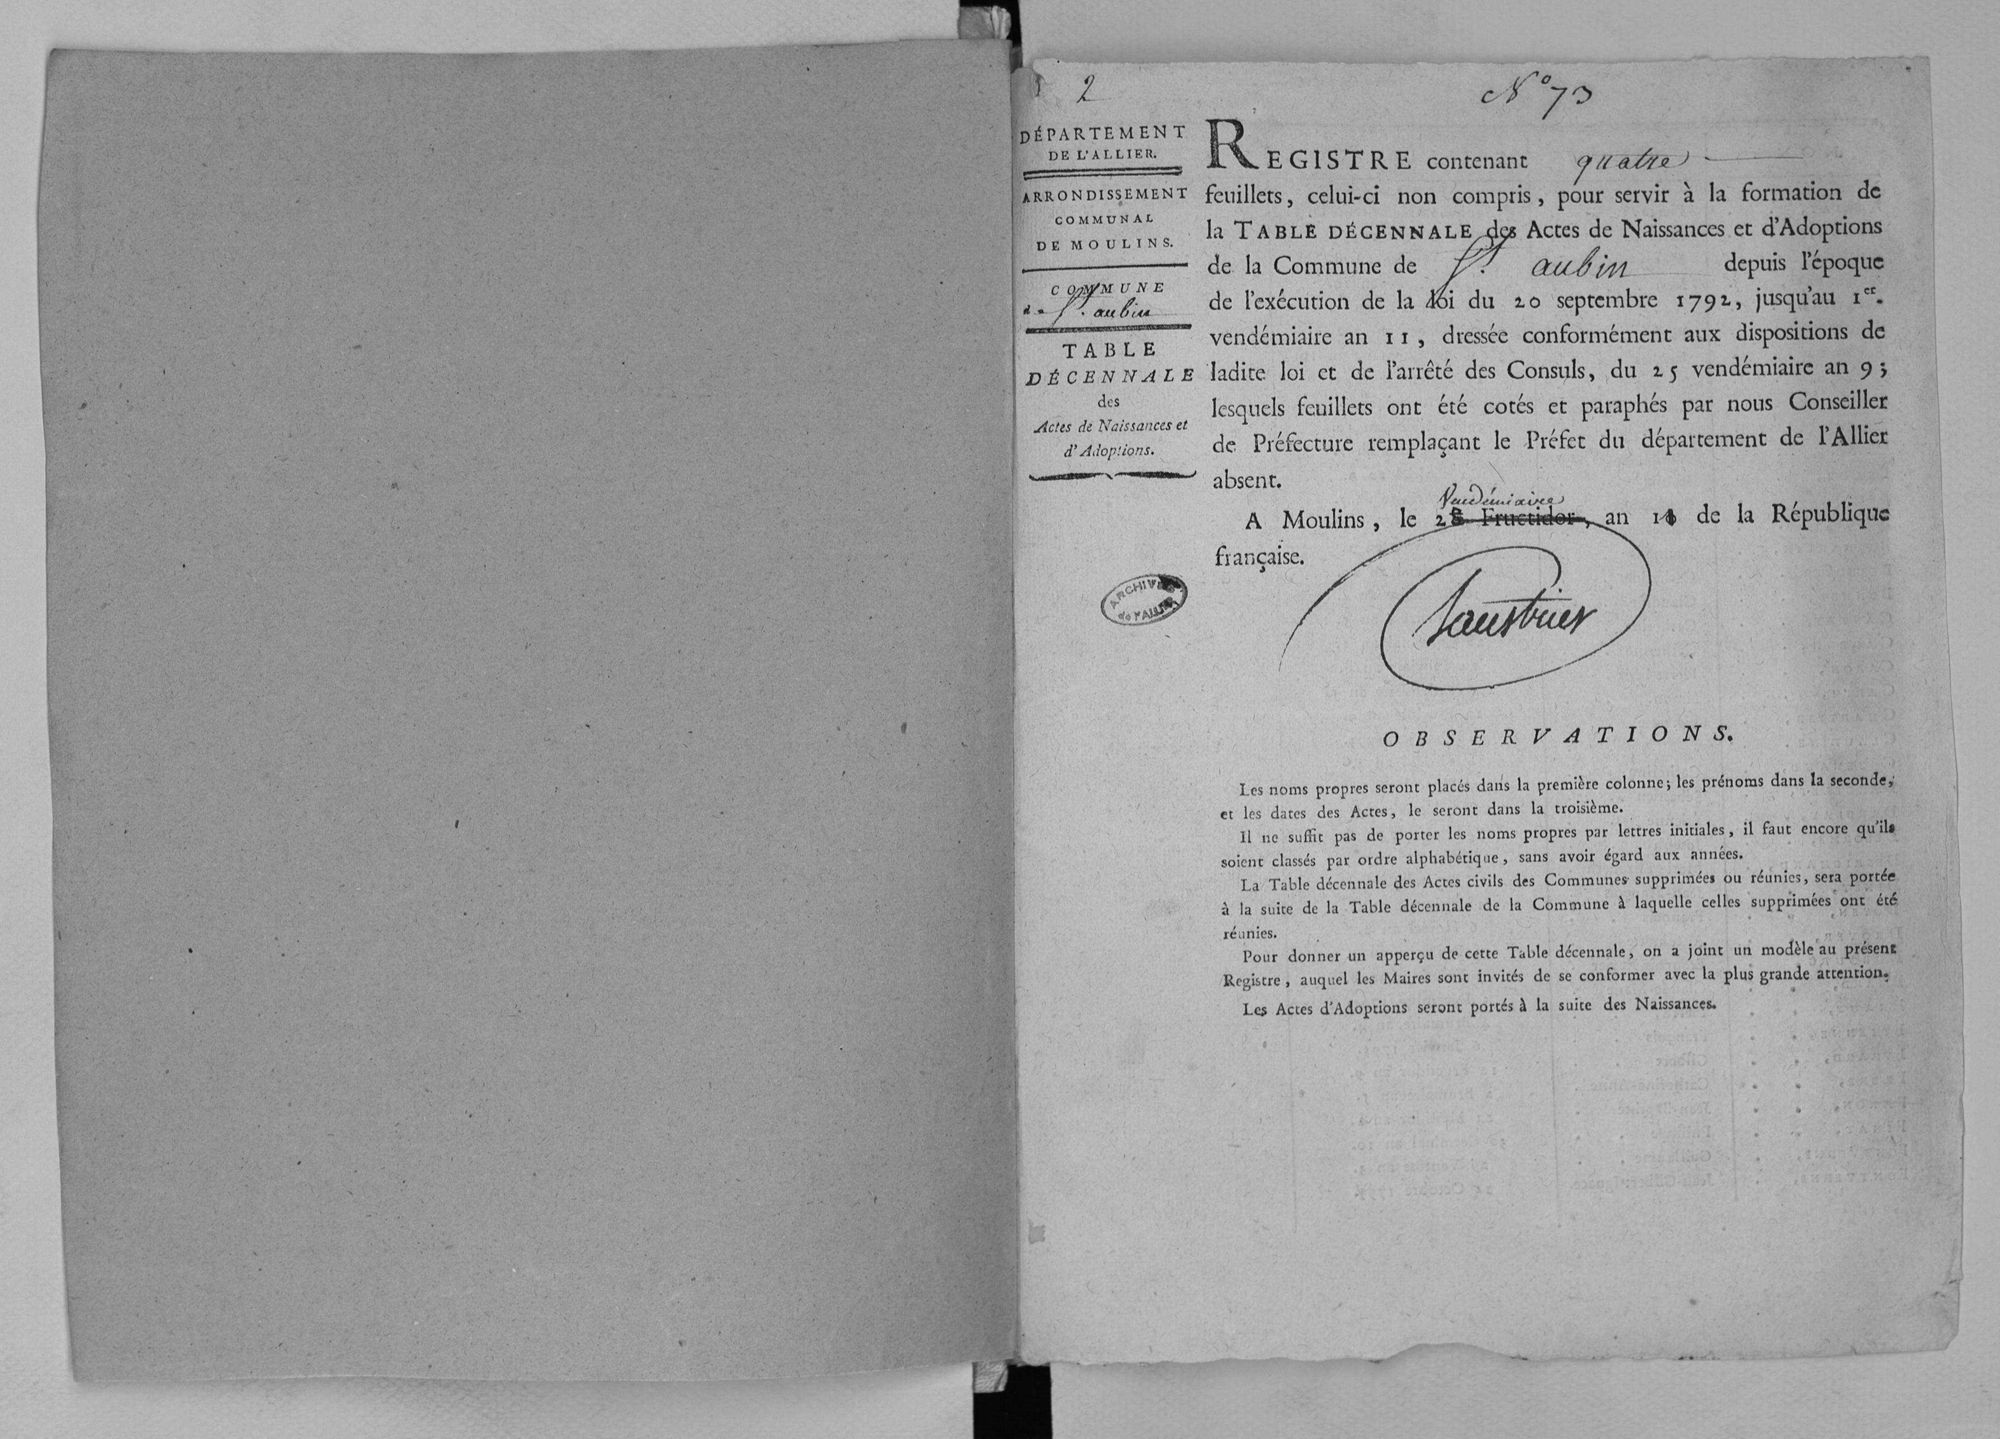 2
N° 73
DÉPARTEMENT
DE L'ALLIER.
ARRONDISSEMENT
COMMUNAL
DE MOULINS.
COMMUNE
de St. aubin
TABLE
DÉCENNALE
des
Actes de Naissances et
d'Adoptions.
REGISTRE contenant quatre
feuillets, celui-ci non compris, pour servir à la formation de
la TABLE DÉCENNALE des Actes de Naissances et d'Adoptions
de la Commune de St. aubin depuis l'époque
de l'exécution de la loi du 20 septembre 1792, jusqu'au 1er.
vendémiaire an 11, dressée conformément aux dispositions de
ladite loi et de l'arrêté des Consuls, du 25 vendémiaire an 9;
lesquels feuillets ont été cotés et paraphés par nous Conseiller
de Préfecture remplaçant le Préfet du département de l'Allier
absent.
Vendémiaire
A Moulins, le 28 Fructidor, an de la République
française.
ARCHIVES
de l'ALLIER
OBSERVATIONS.
Les noms propres seront placés dans la première colonne; les prénoms dans la seconde,
et les dates des Actes, le seront dans la troisième.
Il ne suffit pas de porter les noms propres par lettres initiales, il faut encore qu'ils
soient classés par ordre alphabétique, sans avoir égard aux années.
La Table décennale des Actes civils des Communes supprimées ou réunies, sera portée
à la suite de la Table décennale de la Commune à laquelle celles supprimées ont été
réunies.
Pour donner un apperçu de cette Table décennale, on a joint un modèle au présent
Registre, auquel les Maires sont invités de se conformer avec la plus grande attention.
Les Actes d'Adoptions seront portés à la suite des Naissances.